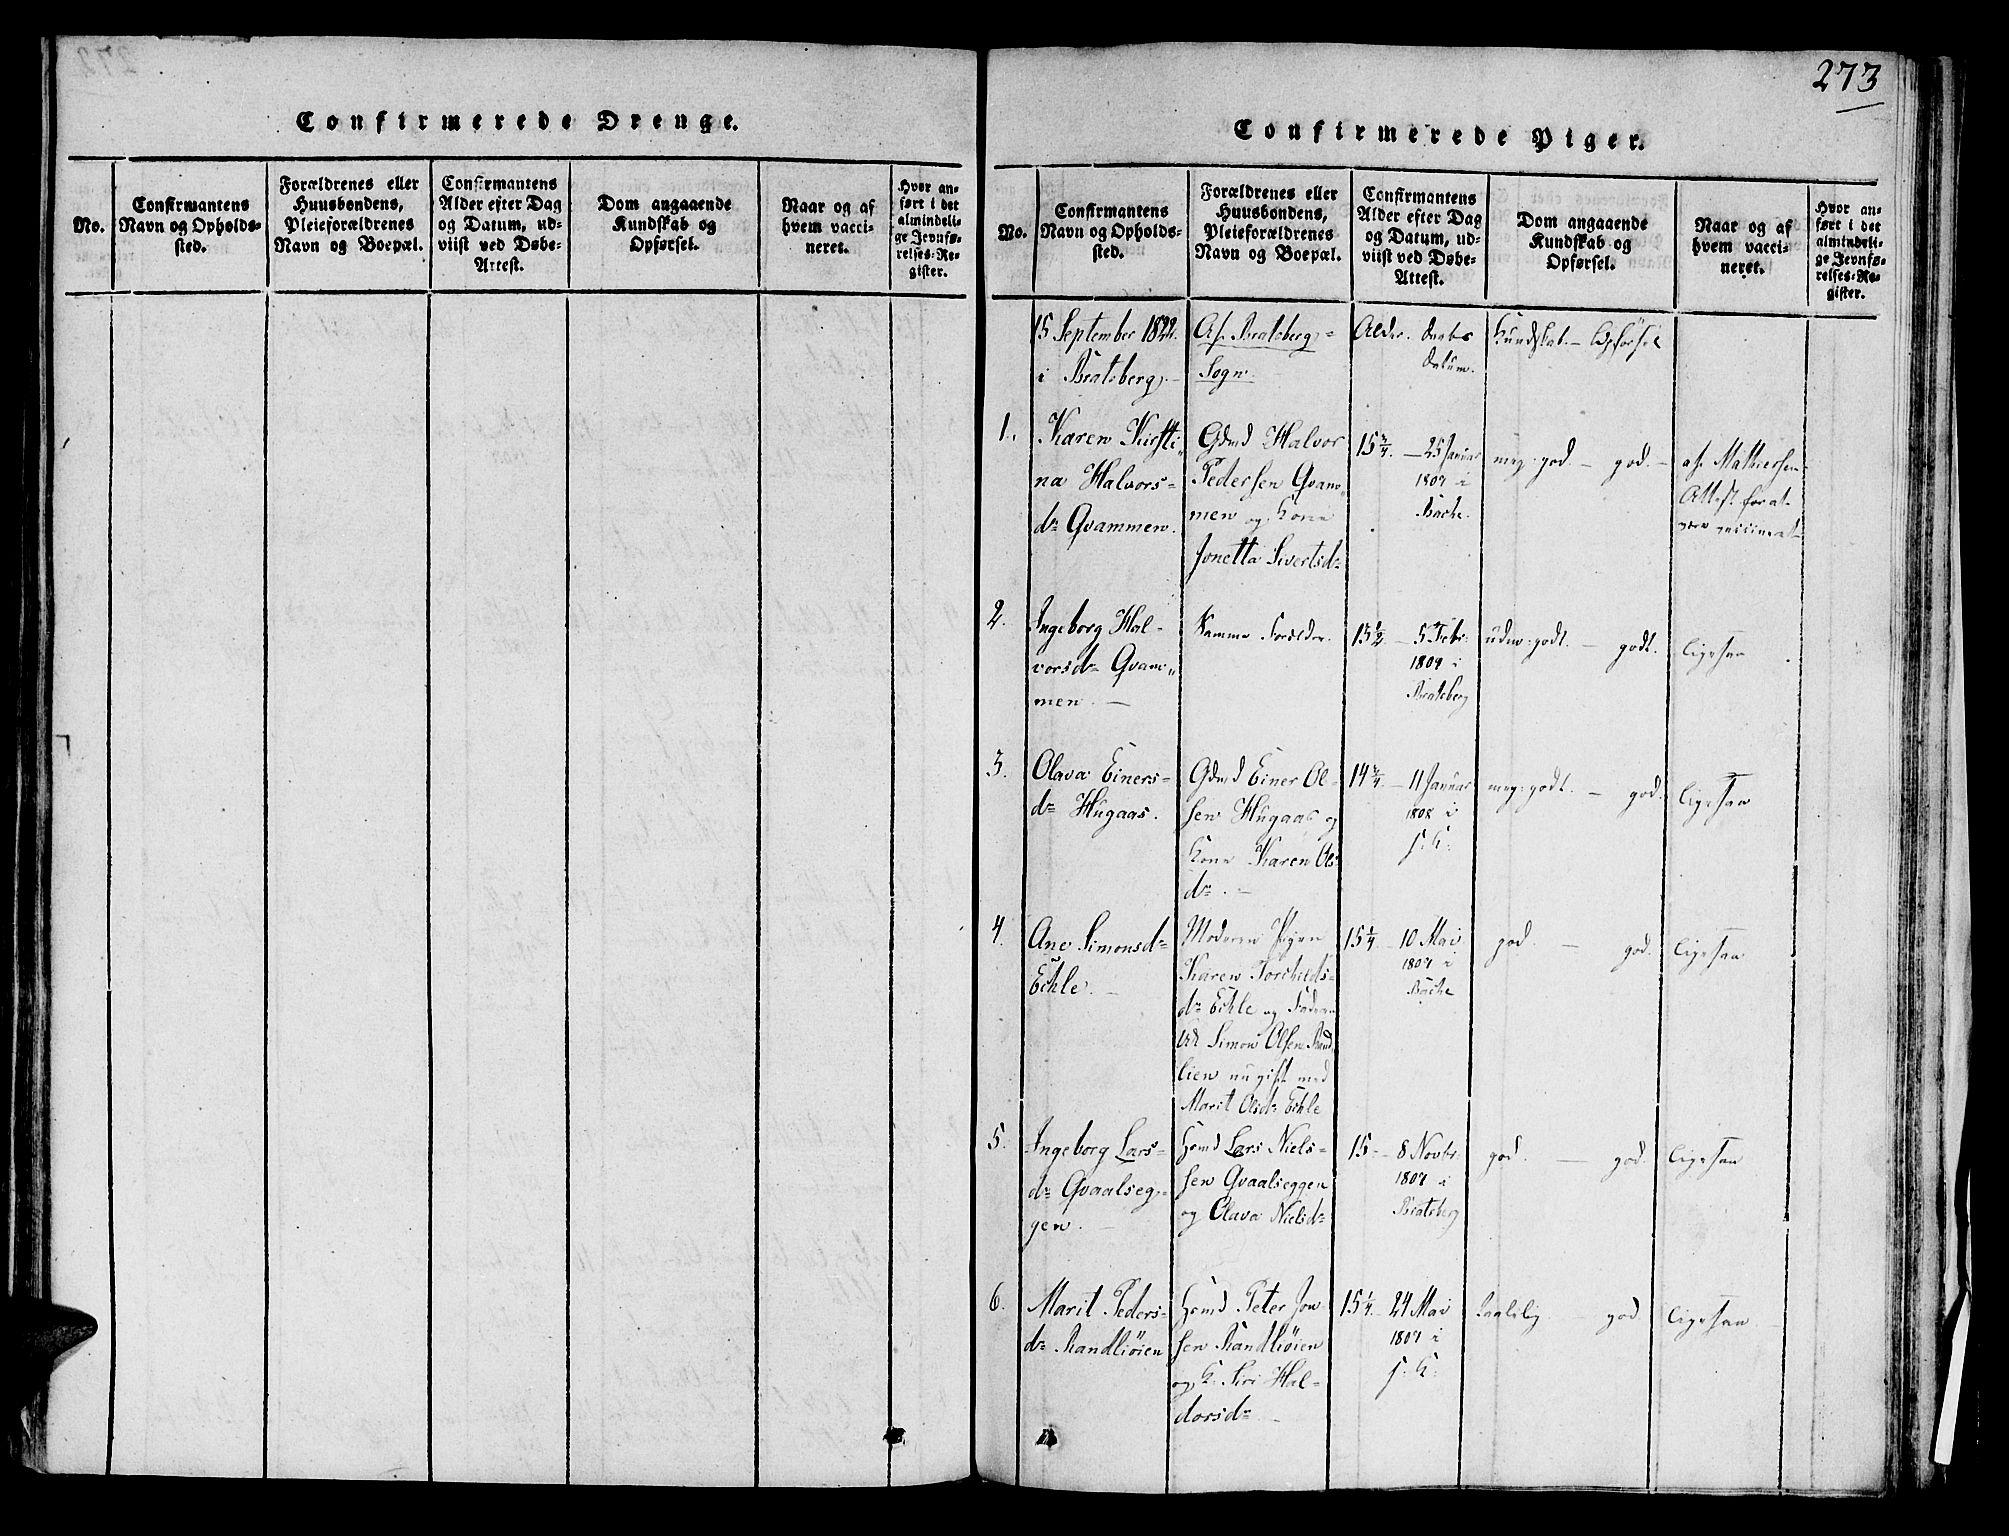 273
Confirmerede Drenge.
No.
Confirmantens
Navn og Opholds-
sted.
Forældrenes eller
Huusbondens,
Pleieforældrenes
Navn og Boepæl.
Confirmantens
Alder efter Dag
og Datum, ud-
viist ved Døbe-
Attest.
Dom angaaende
Kundskab og
Opførsel.
Naar og af
hvem vacci-
neret.
Hvor an-
ført i det
almindeli-
ge Jevnfø-
relses-Re-
gister.
Confirmerede Piger.
No.
Confirmantens
Navn og Opholds-
sted.
Forældrenes eller
Huusbondens,
Pleieforældrenes
Navn og Boepæl.
Confirmantens
Alder efter Dag
og Datum, ud-
viist ved Døbe-
Attest.
Dom angaaende
Kundskab og
Opførsel.
Naar og af
hvem vacci-
neret.
Hvor an-
ført i det
almindeli-
ge Jevnfø-
relses-Re-
gister.
15 September 1822.
i Bratsberg.
Af Bratsberg-
Sogn
Alder. Daabs
Datum.
Kundskab. - Opførsel
1.
Karen Kirsti-
na Halvors-
dr Qvammen.
Gdmd Halvor
Pedersen Qvam-
men og Kone
Jonetta Sivertsdr
15 3/4. - 25 Januar
1807 i
Bache.
meg: god. - god. -
af Mathiesen
Attest for at
være vaccineret
2.
Ingeborg Hal-
vorsdr Qvam-
men. -
Samme Forældre.
15 1/2 - 5 Febr:
1809 i
Bratsberg
udm: godt. - godt.
ligesaa
3.
Olava Einers-
dr Hugaas.
Gdmd Einer Ol-
sen Hugaas og
Kone Karen Ols-
dr. -
14 3/4. - 11 Januar
1808 i
S: K:
meg: godt. - god.
ligesaa
4.
Ane Simonsd-
Echle. -
Moderen Pigen
Karen Torchilds-
dr Echle og Faderen
Simon Olsen Rand-
lien nu gift med
Marit Olsdr Echle
15 1/4 - 10 Mai
1807 i
Bache
god. - god.
ligesaa
5.
Ingeborg Lars-
dr Qvaalseg-
gen. -
Hmd Lars Niels-
sen Qvaalseggen
og Olava Nielsdr
15. - 8 Novbr
1807 i
Bratsberg
god. - god.
ligesaa
6.
Marit Peders-
dr Randliøien
Hmd Peter Jon-
sen Randliøien
og K. Siri Hal-
dorsdr -
15 1/4. - 24 Mai
1807 i
S: K:
taalelig - god.
ligesaa